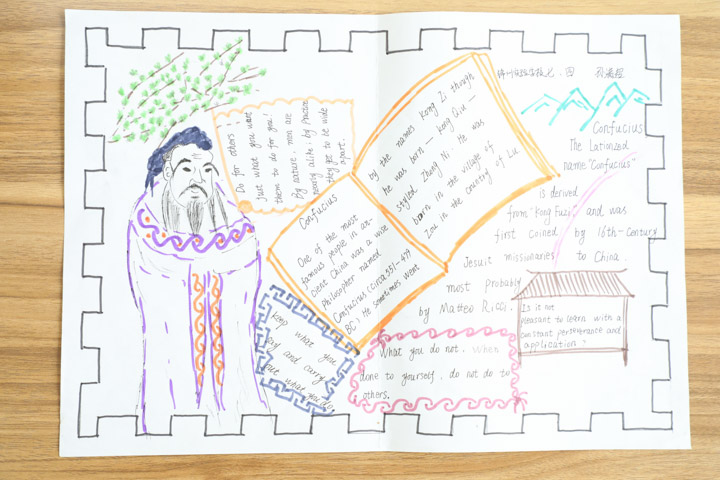 Do for others
just what you want
them to do for you!
By nature, men are
nearly alike; by practice,
they get to be wide
apart.
Confucius
One of the most
famous people in an-
cient China was a wise
Philosopher named
Confucius (circa 551-479
BC). He sometimes went
by the names Kong Zi though
he was born — Kong Qiu —
styled Zhong Ni. He was
born in the village of
Zou in the country of Lu
Confucius
The Lationized
name "Confucius"
is derived
from "Kong Fuzi" and was
first coined by 16th-Century
Jesuit missionaries to China.
most Probably
by Matteo Ricci.
Is it not
pleasant to learn with a
constant perseverance and
application?
keep what you
say and carry
out what you do
What you do not. When
done to yourself, do not do to
others.